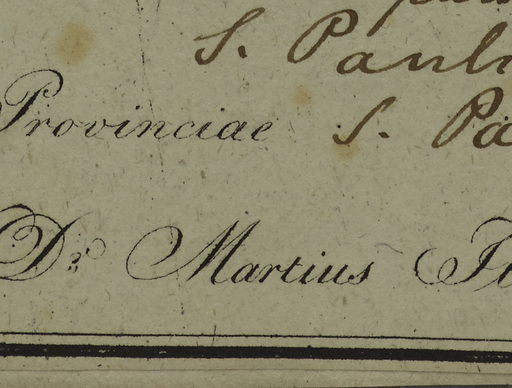 S. Paul
Provinciae S. Pa
Dr. Martius It